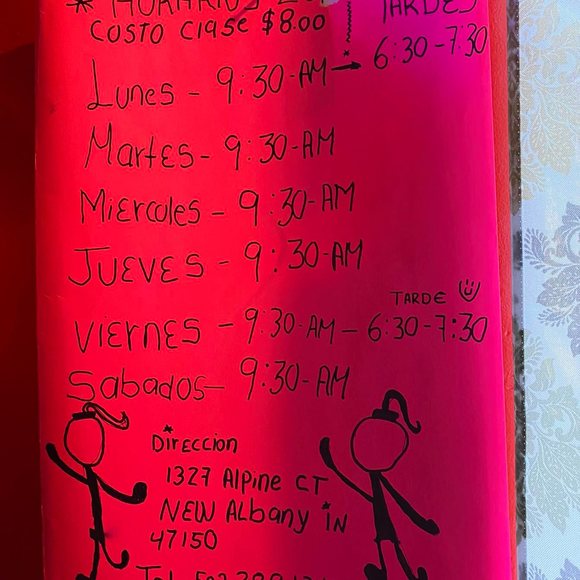 * HORARIOS
TARDES
COSTO Clase $8.00
LUNES - 9:30-AM → 6:30-7:30
MARTES - 9:30-AM
MIERCOLES - 9:30-AM
JUEVES - 9:30-AM
TARDE
VIERNES - 9:30-AM - 6:30-7:30
Sabados - 9:30-AM
DirECCION
1327 Alpine CT
NEW Albany iN
47150
Tel